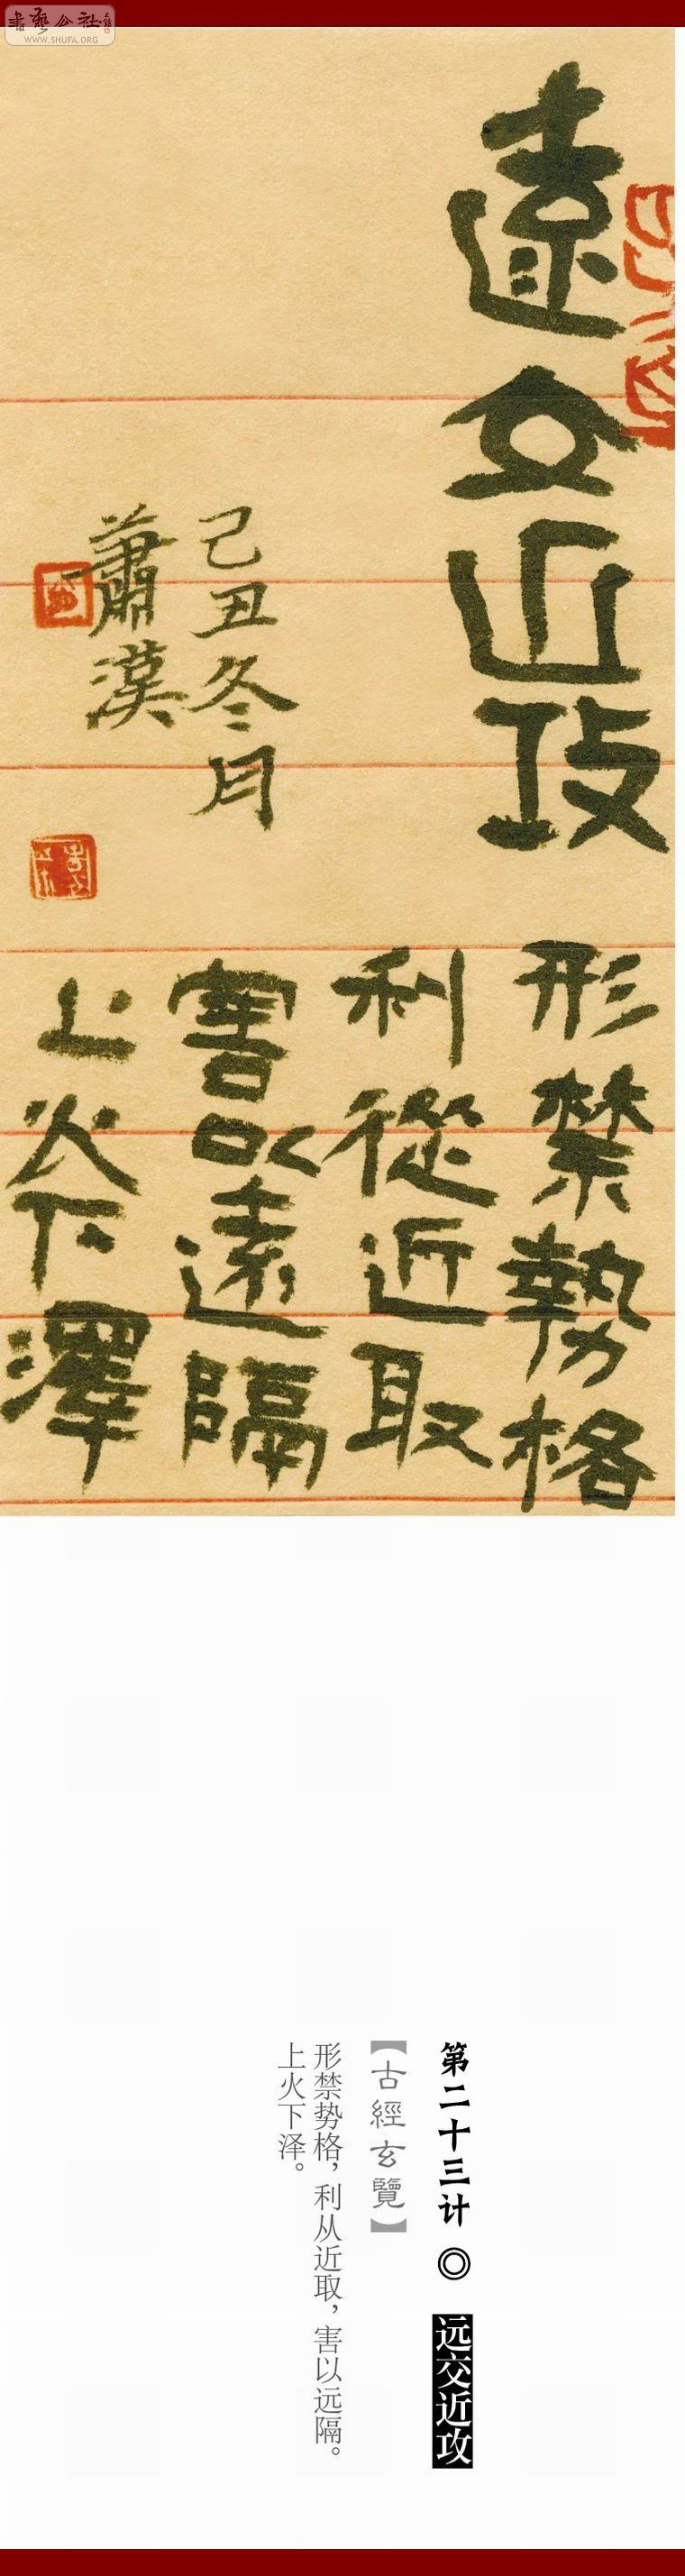 書藝公社
WWW.SHUFA.ORG
遠交近攻
形禁勢格
利從近取
害以遠隔
上火下澤
己丑冬月
蕭漢
第二十三计 ◎ 远交近攻
【古經玄覽】
形禁势格，利从近取，害以远隔。
上火下泽。